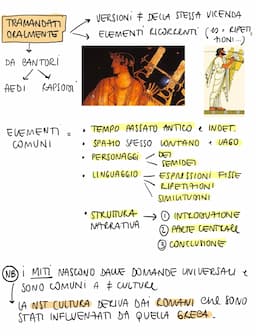 TRAMANDATI ORALMENTE
VERSIONI ≠ DELLA STESSA VICENDA
ELEMENTI RICORRENTI (es = RIPETI,
TIONI ...)
DA CANTORI
AEDI RAPSODI
ELEMENTI COMUNI =
• TEMPO PASSATO ANTICO e INDET.
• SPAZIO SPESSO LONTANO e VAGO
• PERSONAGGI
DEI
SEMIDEI
• LINGUAGGIO
ESPRESSIONI FISSE
RIPETITIONI
SIMILITUDINI
• STRUTTURA NARRATIVA
① INTRODUZIONE
② PARTE CENTRALE
③ CONCLUSIONE
NB
i MITI NASCONO DALLE DOMANDE UNIVERSALI e
SONO COMUNI A ≠ CULTURE
LA NST CULTURA DERIVA DAI ROMANI CHE SONO
STATI INFLUENTATI DA QUELLA GRECA.